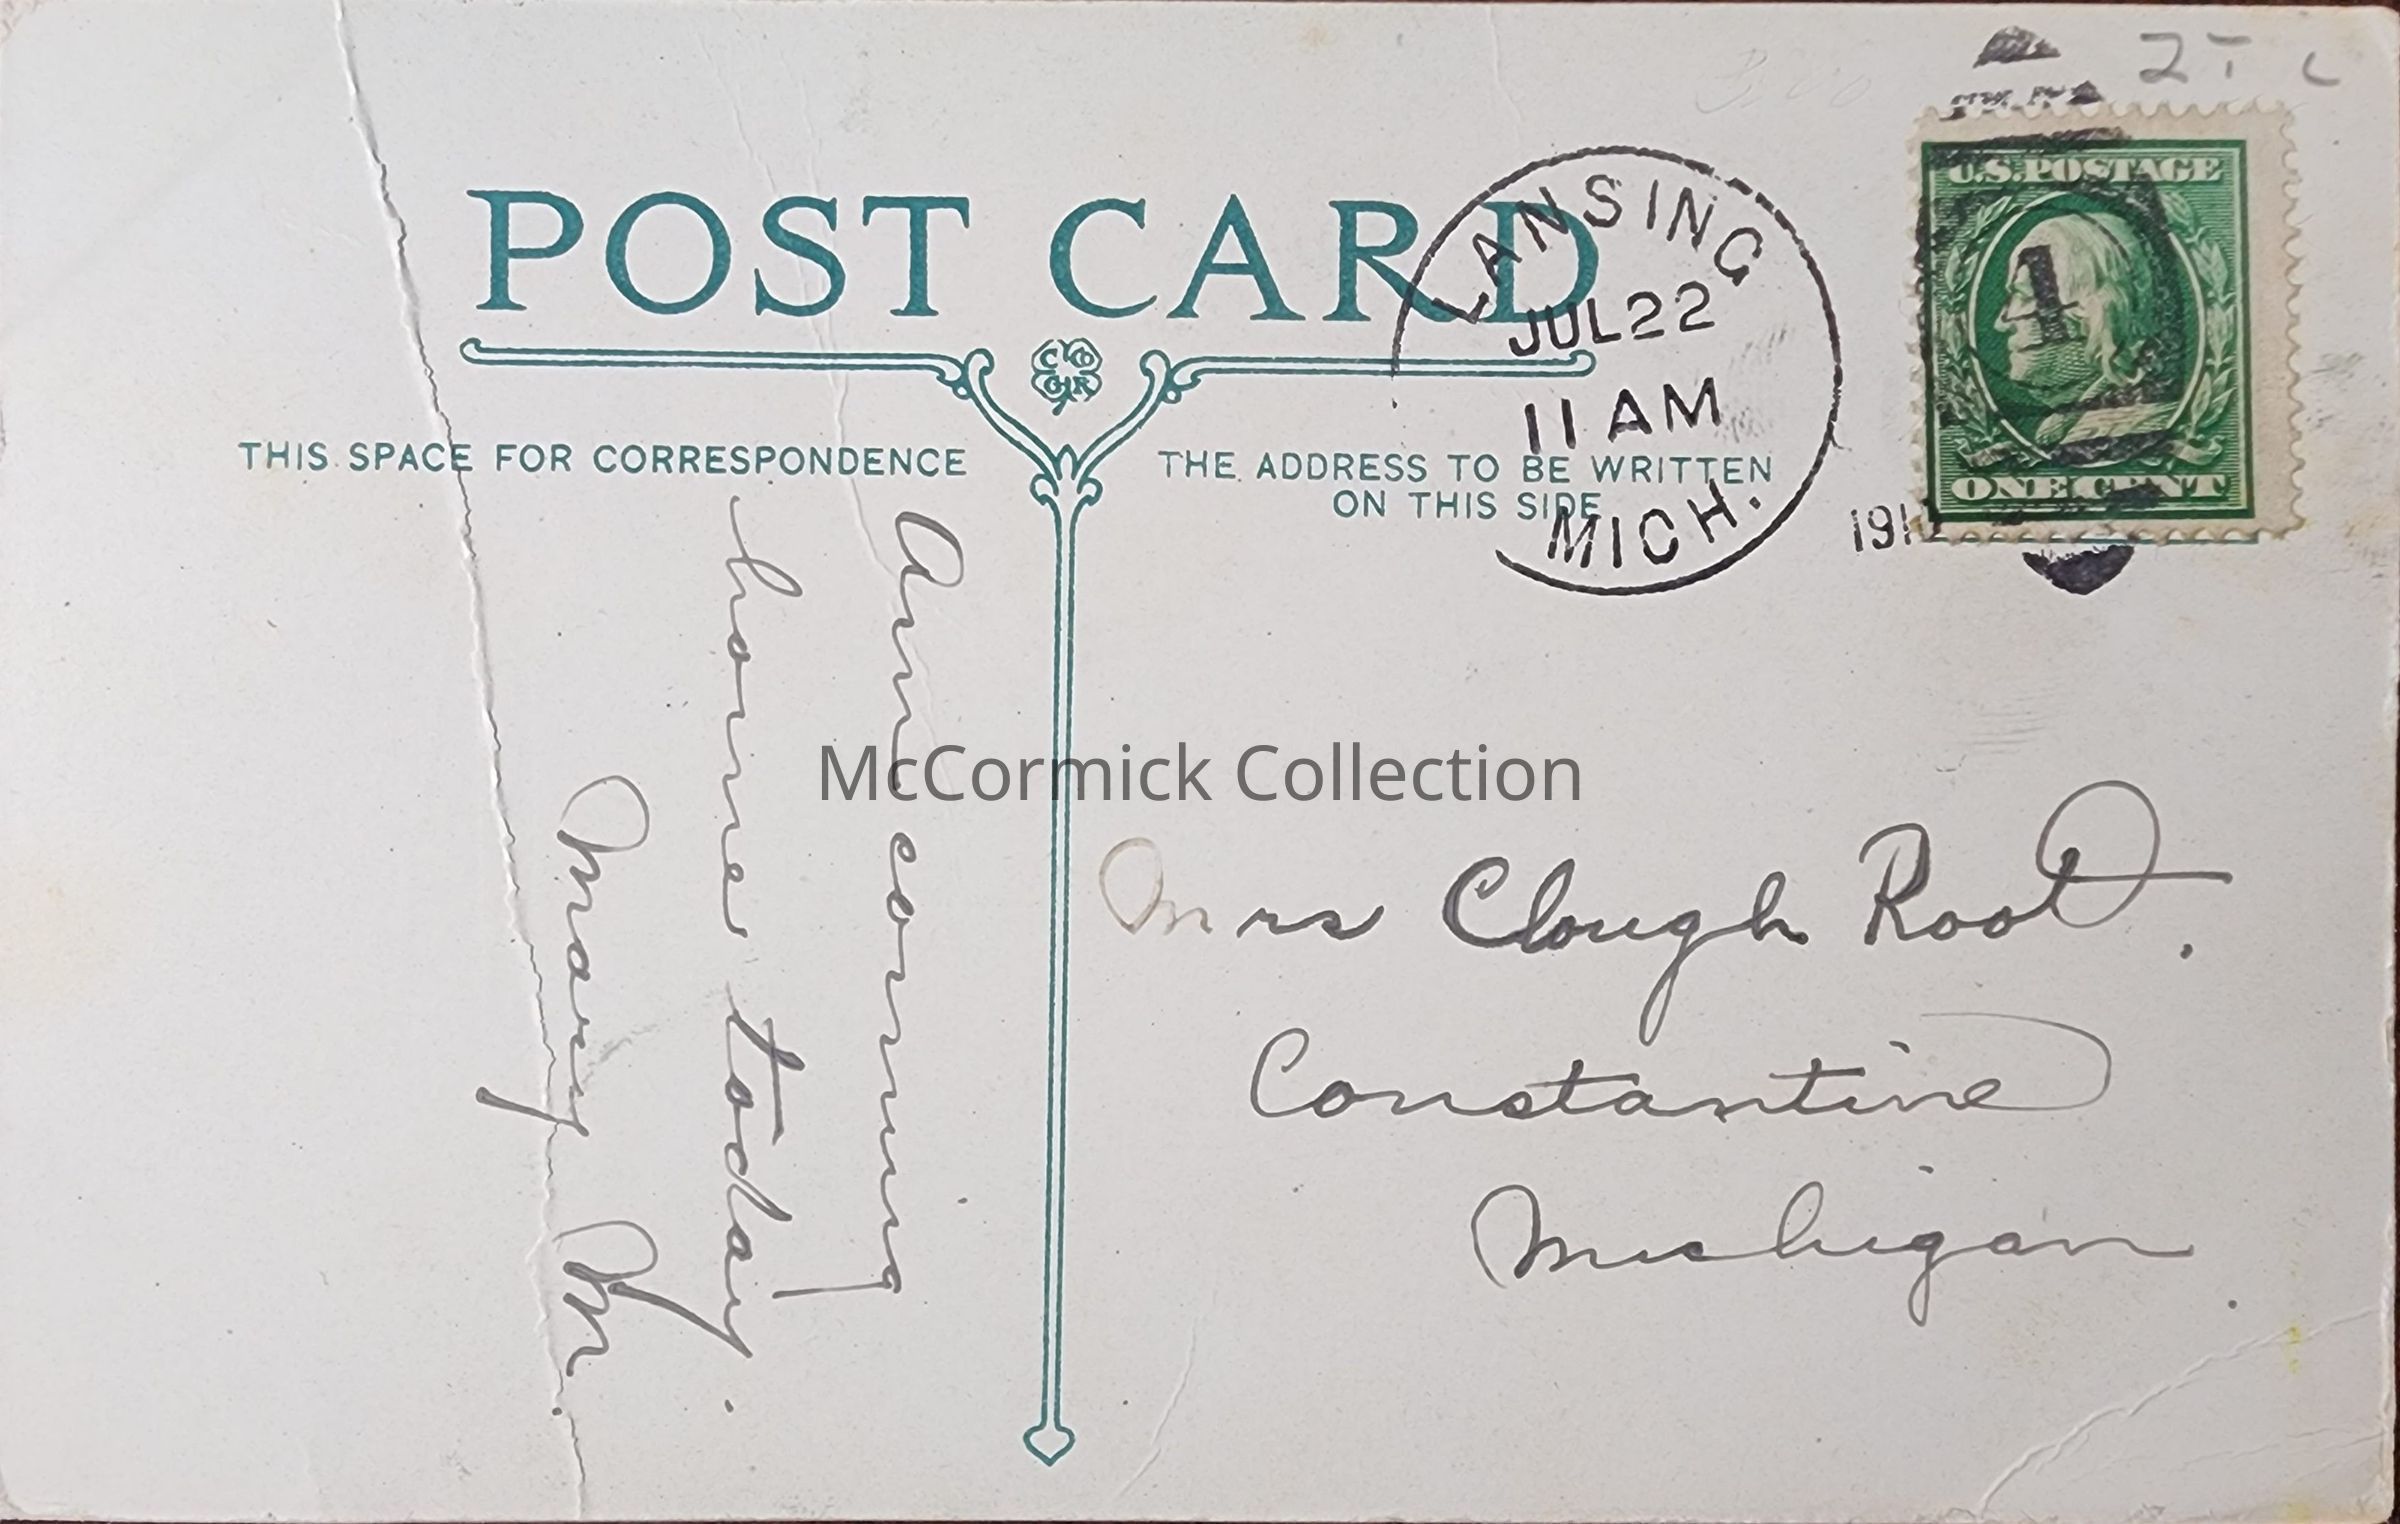 POST CARD
THIS SPACE FOR CORRESPONDENCE
THE ADDRESS TO BE WRITTEN
ON THIS SIDE
LANSING
JUL 22
11 AM
MICH.
U.S. POSTAGE
1
ONE CENT
Am coming
home today.
Mary M.
McCormick Collection
Mrs Clough Root.
Constantine
Michigan.